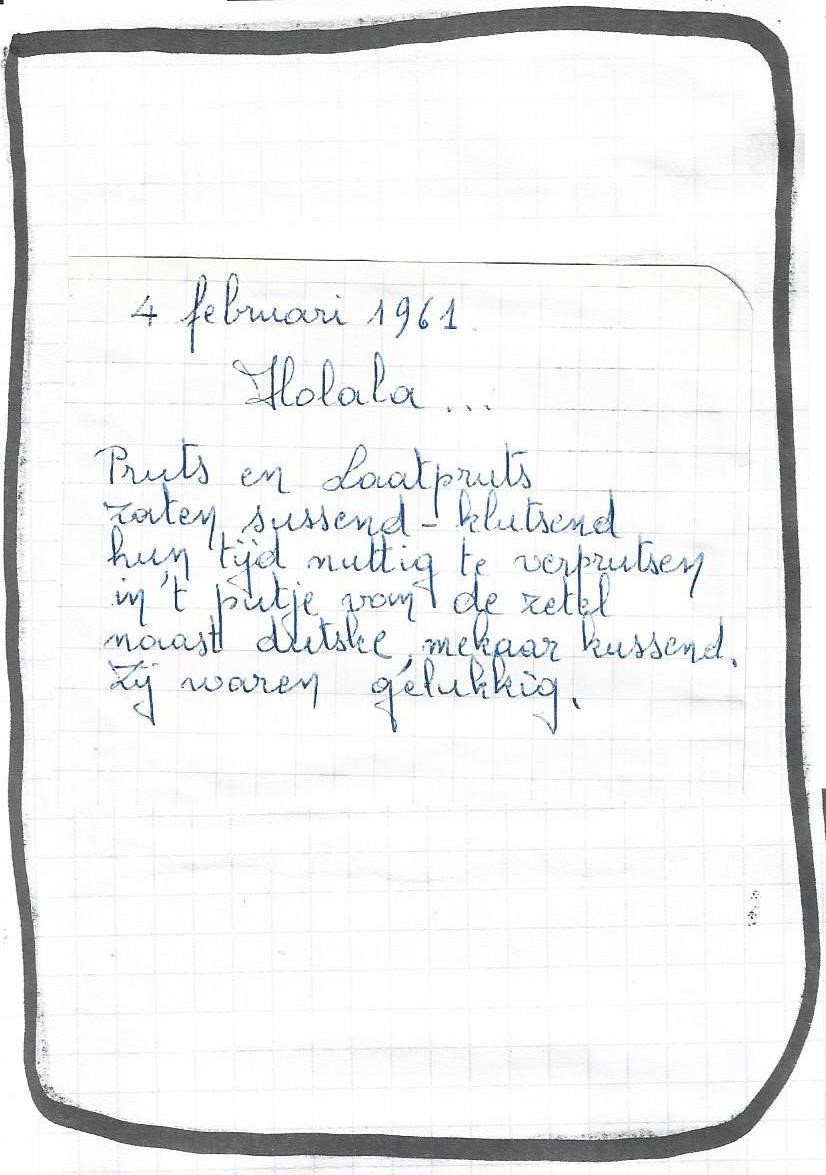 4 februari 1961.
Holala ...
Pruts en Laatpruts
zaten sussend - klutsend
hun tijd nuttig te verprutsen
in 't putje van de zetel
naast dutske, mekaar kussend.
Zij waren gelukkig.